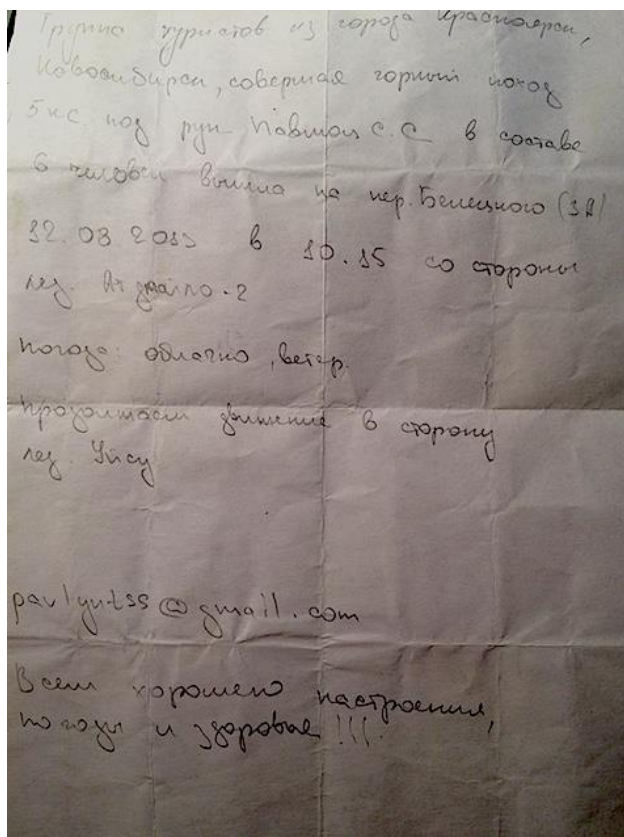 Группа туристов из города Красноярск,
Новосибирск, совершая горный поход
5 к.с. под рук. С.С в составе
6 человек вышла на пер. Белецкого (3А)
12.08 2013 в 10.15 со стороны
лед. -2
Погода: облачно, ветер.
Продолжаем движение в сторону
лед. Уйсу
pavlyutss@gmail.com
Всем хорошего настроения,
погоды и здоровья!!!